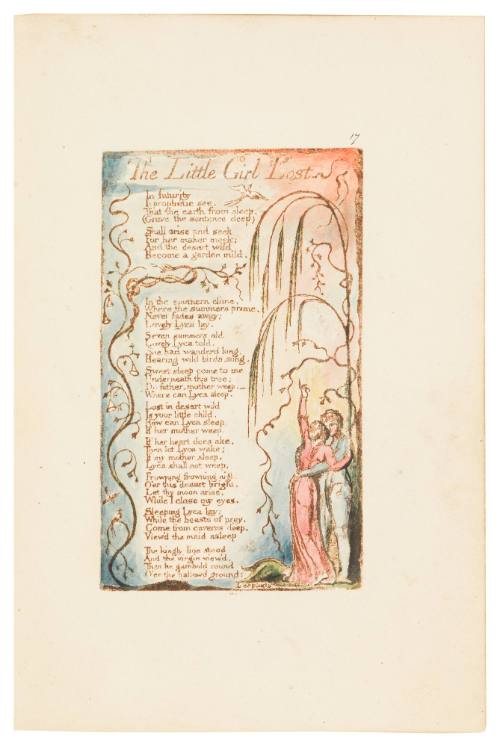 17
The Little Girl Lost
In futurity
I prophetic see,
That the earth from sleep,
(Grave the sentence deep)
Shall arise and seek
For her maker meek:
And the desart wild
Become a garden mild.
In the southern clime,
Where the summers prime,
Never fades away;
Lovely Lyca lay.
Seven summers old
Lovely Lyca told,
She had wanderd long,
Hearing wild birds song.
Sweet sleep come to me
Underneath this tree;
Do father, mother weep.—
Where can Lyca sleep.
Lost in desart wild
Is your little child.
How can Lyca sleep,
If her mother weep.
If her heart does ake,
Then let Lyca wake;
If my mother sleep,
Lyca shall not weep.
Frowning frowning night,
O'er this desart bright,
Let thy moon arise,
While I close my eyes.
Sleeping Lyca lay;
While the beasts of prey,
Come from caverns deep,
View'd the maid asleep
The kingly lion stood
And the virgin view'd,
Then he gambold round
O'er the hallowd ground: